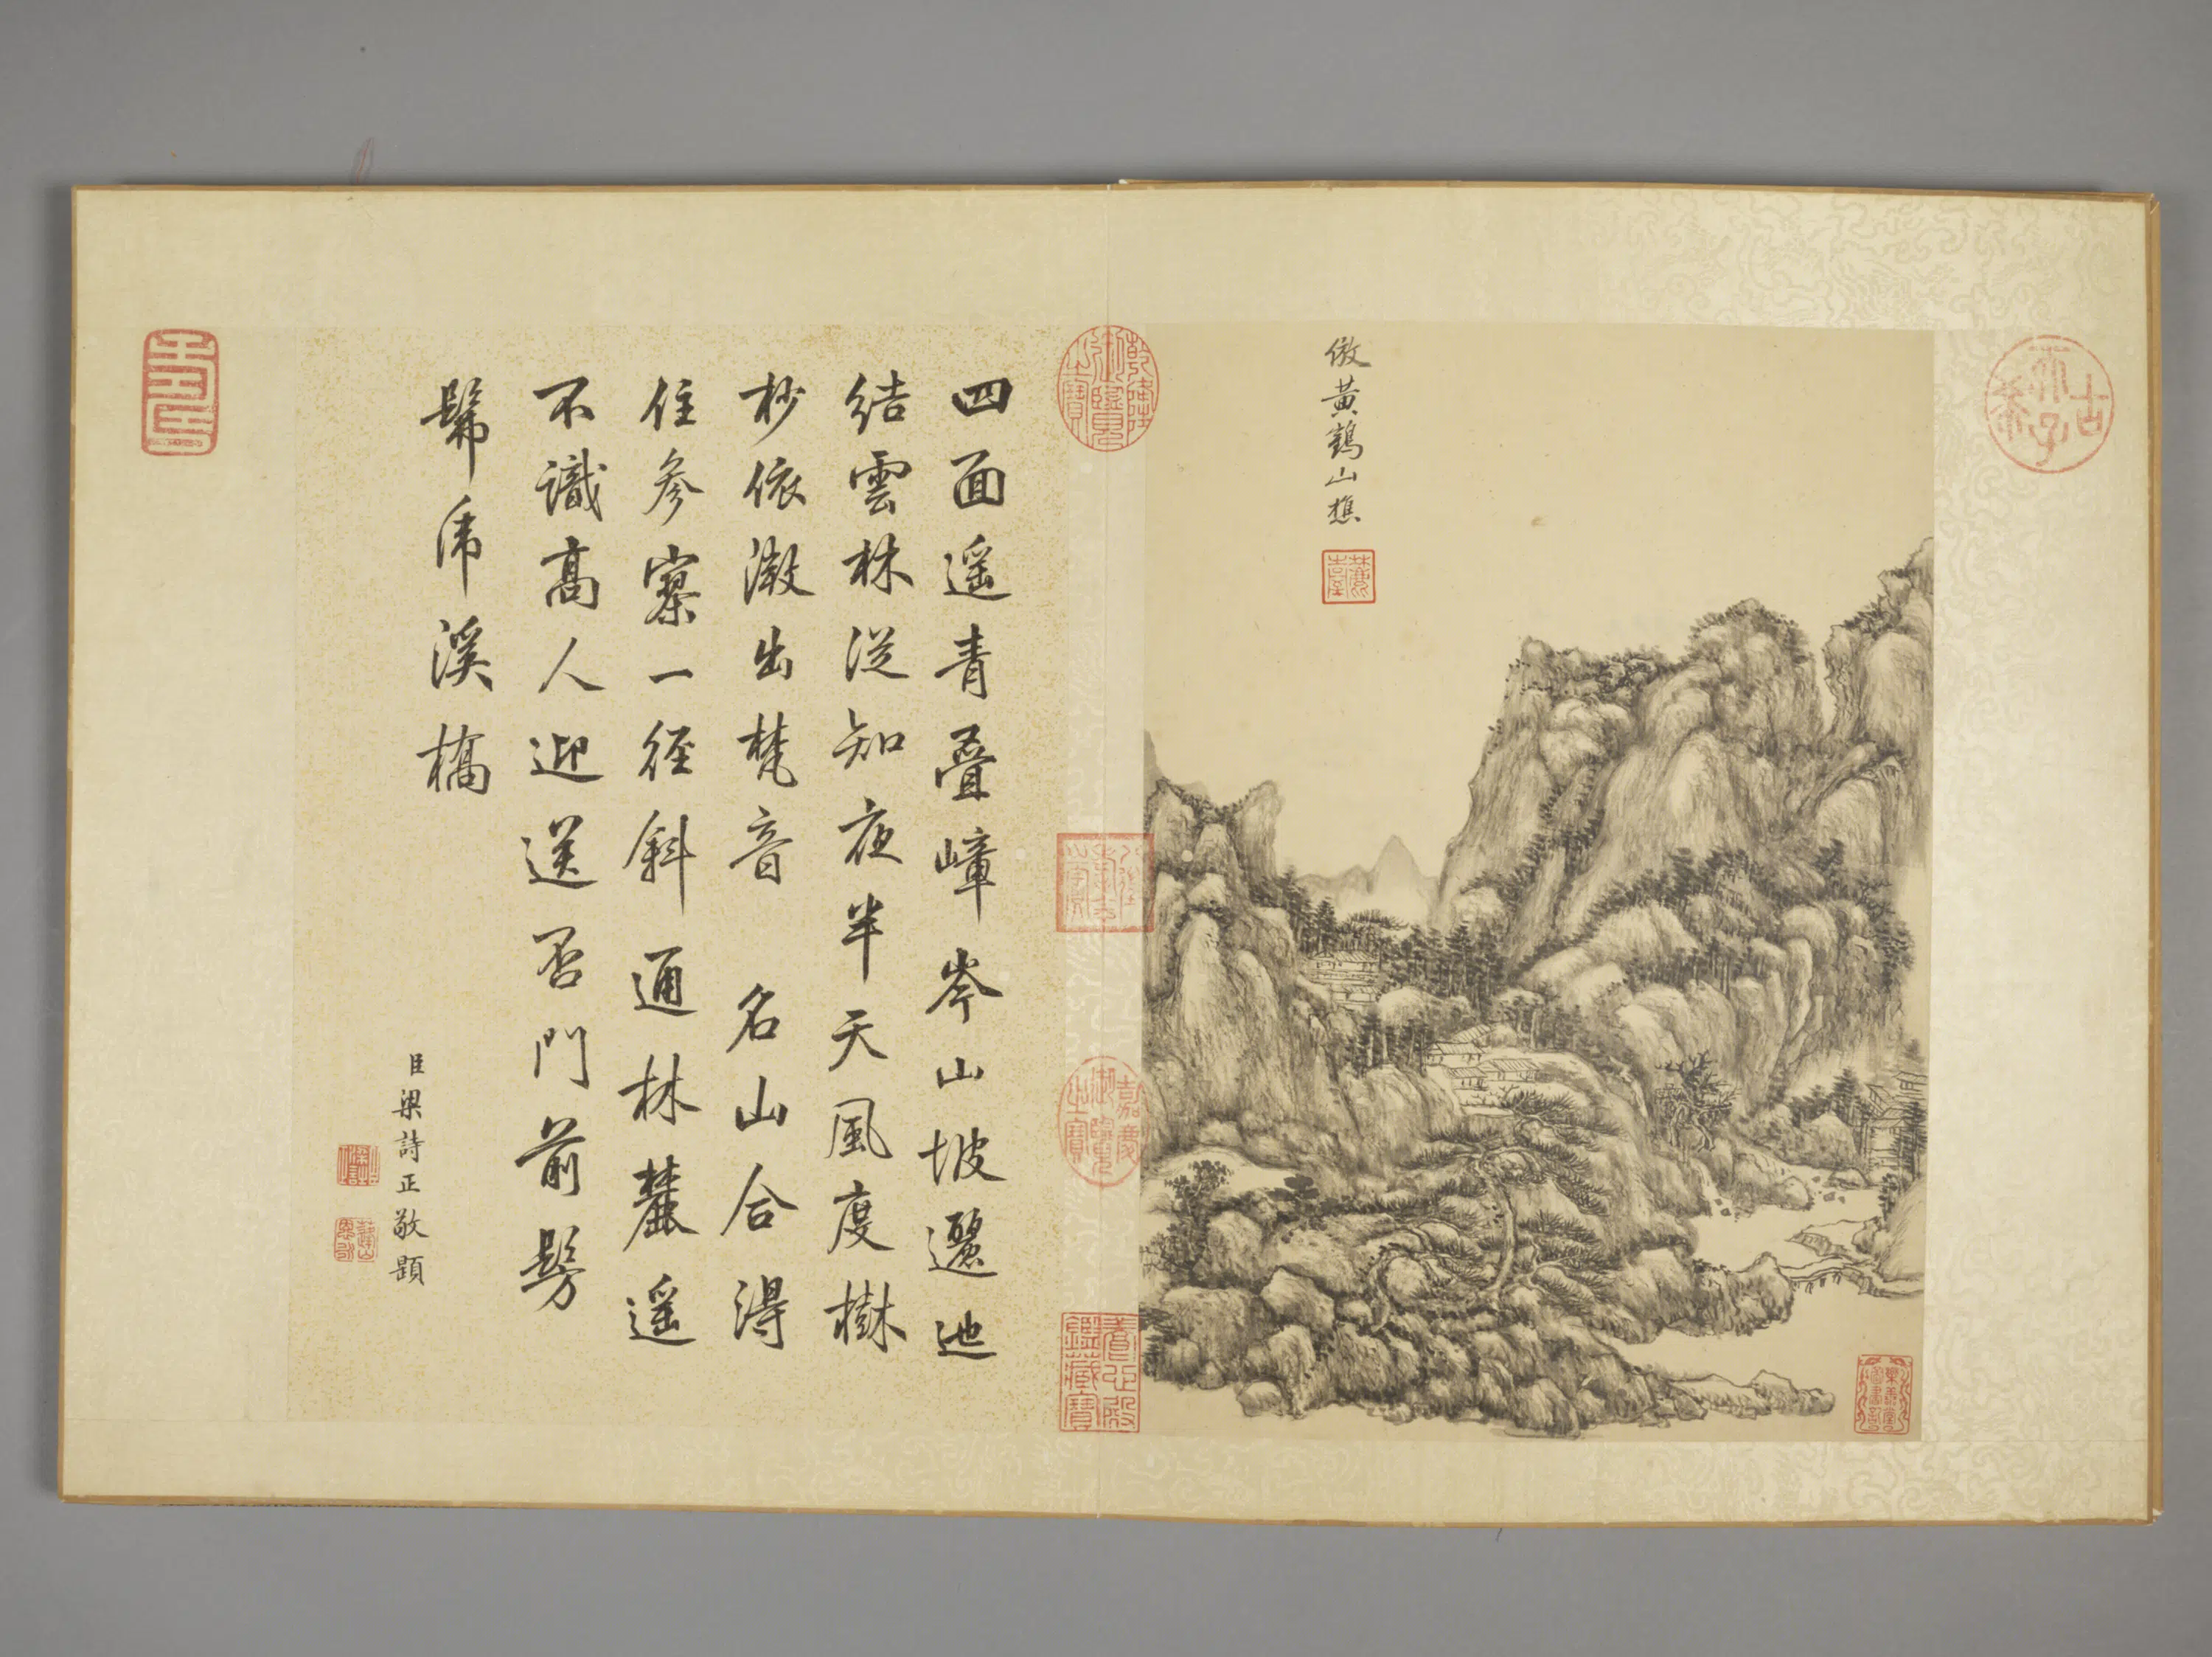 倣黃鶴山樵
四面遥青疊嶂岑山坡邐迆
結雲林從知夜半天風度樹
杪依澂出梵音 名山合得
住參寥一径斜通林麓遥
不識高人迎送否門前髣
髴虎溪橋
臣梁詩正敬題
乾隆御覽之寶
八徵耄念之寶
嘉慶御覽之寶
養心殿鑑藏寶